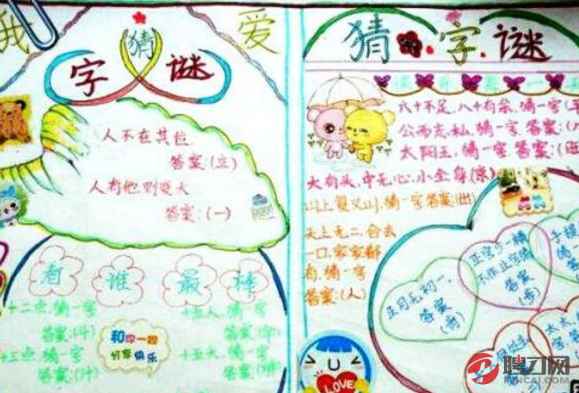 我爱猜
字谜
人不在其位
答案:(立)
人有他则变大
答案:(一)
看谁最棒
十二点,猜一字
答案:(斗)
十三点,猜一字
答案:(汁)
十五人,猜一字
十五天,猜一字
答案:(胖)
和你一起
分享快乐
猜字谜
六十不足,八十有余,猜一字
公而忘私,猜一字 答案:
太阳王,猜一字 答案:(旺
大有头,中无心,小全身(京)
山上复又山,猜一字答案:(出)
天上无二,合去
一口,家家都
有,猜一字
答案:(人)
正月无初一,
答案:
(肯)
正字少一横
不作止字猜
答案:
(步)
LOVE
聘才网
PINCAI.COM